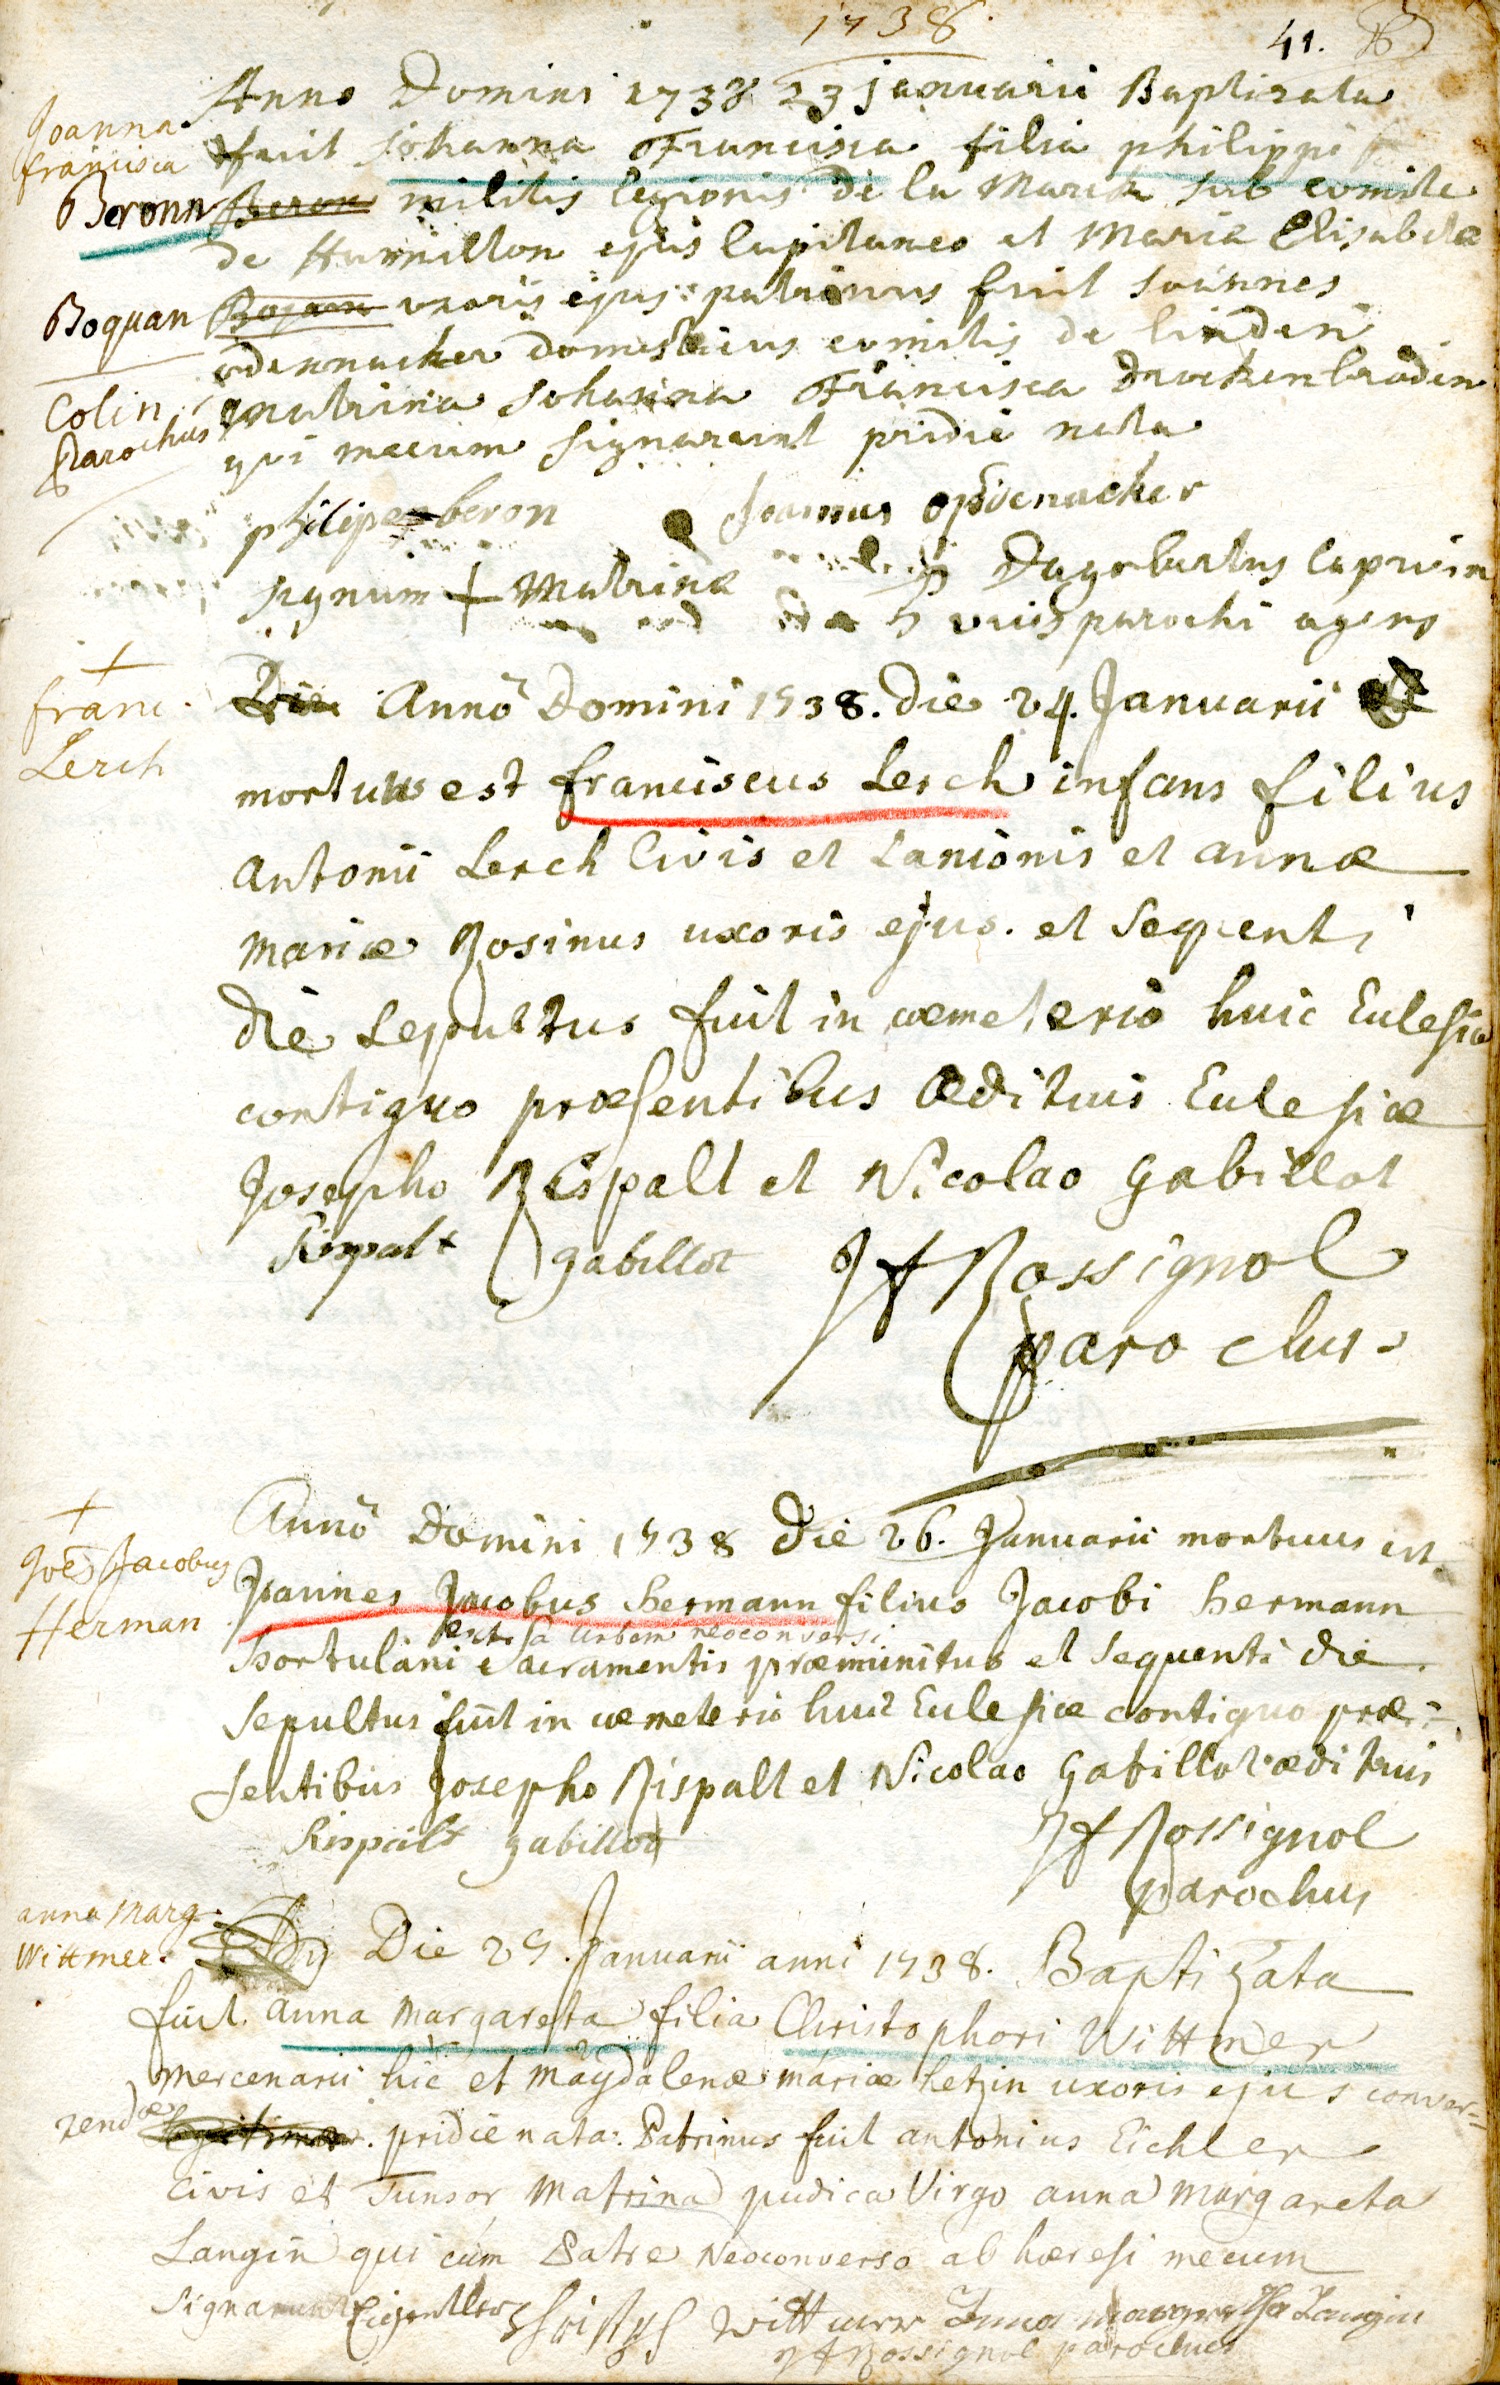 1738.
41.
Joanna
francisca
Beronn
Anno Domini 1738 23 januarii Baptizata
fuit Johanna Francisca filia philippi
Beron militis legionis de la Marck sub comite
de Hamillon ejus Capitaneo et Maria Elisabeta
Boquan
uxoris ejus: patrinus fuit Joannes
odennacker domesticus comitis de linden
Colin
Parochus
matrina Johanna Francisca
qui mecum signarunt pridie nata
philipe beron Joannes
signum + Matrinae Dagobertus
vices parochi agens
+
franc.
Lerch
Die Anno Domini 1738. die 24. Januarii
mortuus est franciscus Lerch infans filius
Antonii Lerch Civis et Lanionis et annæ
mariæ Rosinus uxoris ejus. et sequenti
die sepultus fuit in cæmeterio huic Ecclesiæ
contiguo præsentibus Ædituis Ecclesiæ
Josepho Rispalt et Nicolao Gabillot
Rispalt gabillot JF Rossignol
parochus
+
Joes Jacobus
Herman
Anno Domini 1738 die 26. Januarii mortuus est
Joannes Jacobus hermann filius Jacobi hermann
extra urbem neoconversi
hortulani sacramentis præmunitus et sequenti die
sepultus fuit in cæmeterio huic Ecclesiæ contiguo præ=
sentibus Josepho Rispalt et Nicolao Gabillot ædituis
Rispalt gabillot JF Rossignol
parochus
anna Marg.
Wittmer.
Die 29. Januarii anni 1738. Baptizata
fuit anna Margareta filia Christophori Wittmer
mercenarii hic et Magdalenæ mariæ hetzin uxoris ejus conver=
zendæ legitimæ. pridie nata: Patrinus fuit antonius Eichler
Civis et Tunsor Matrina pudica Virgo anna Margareta
Langin qui cum Patre Neoconverso ab hæresi mecum
signarunt Wittmer Anna Margretha Langin
JF Rossignol parochus